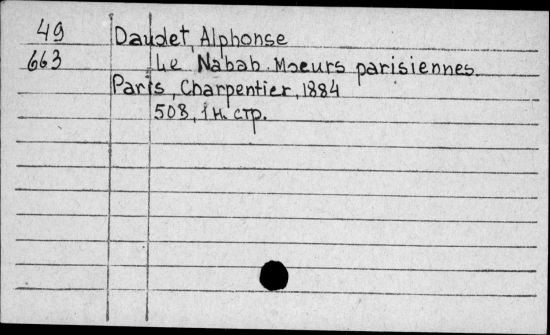 49 Daudet, Alphonse
663 Le Nabab. Moeurs parisiennes.
Paris, Charpentier, 1884
508, 1 н. стр.